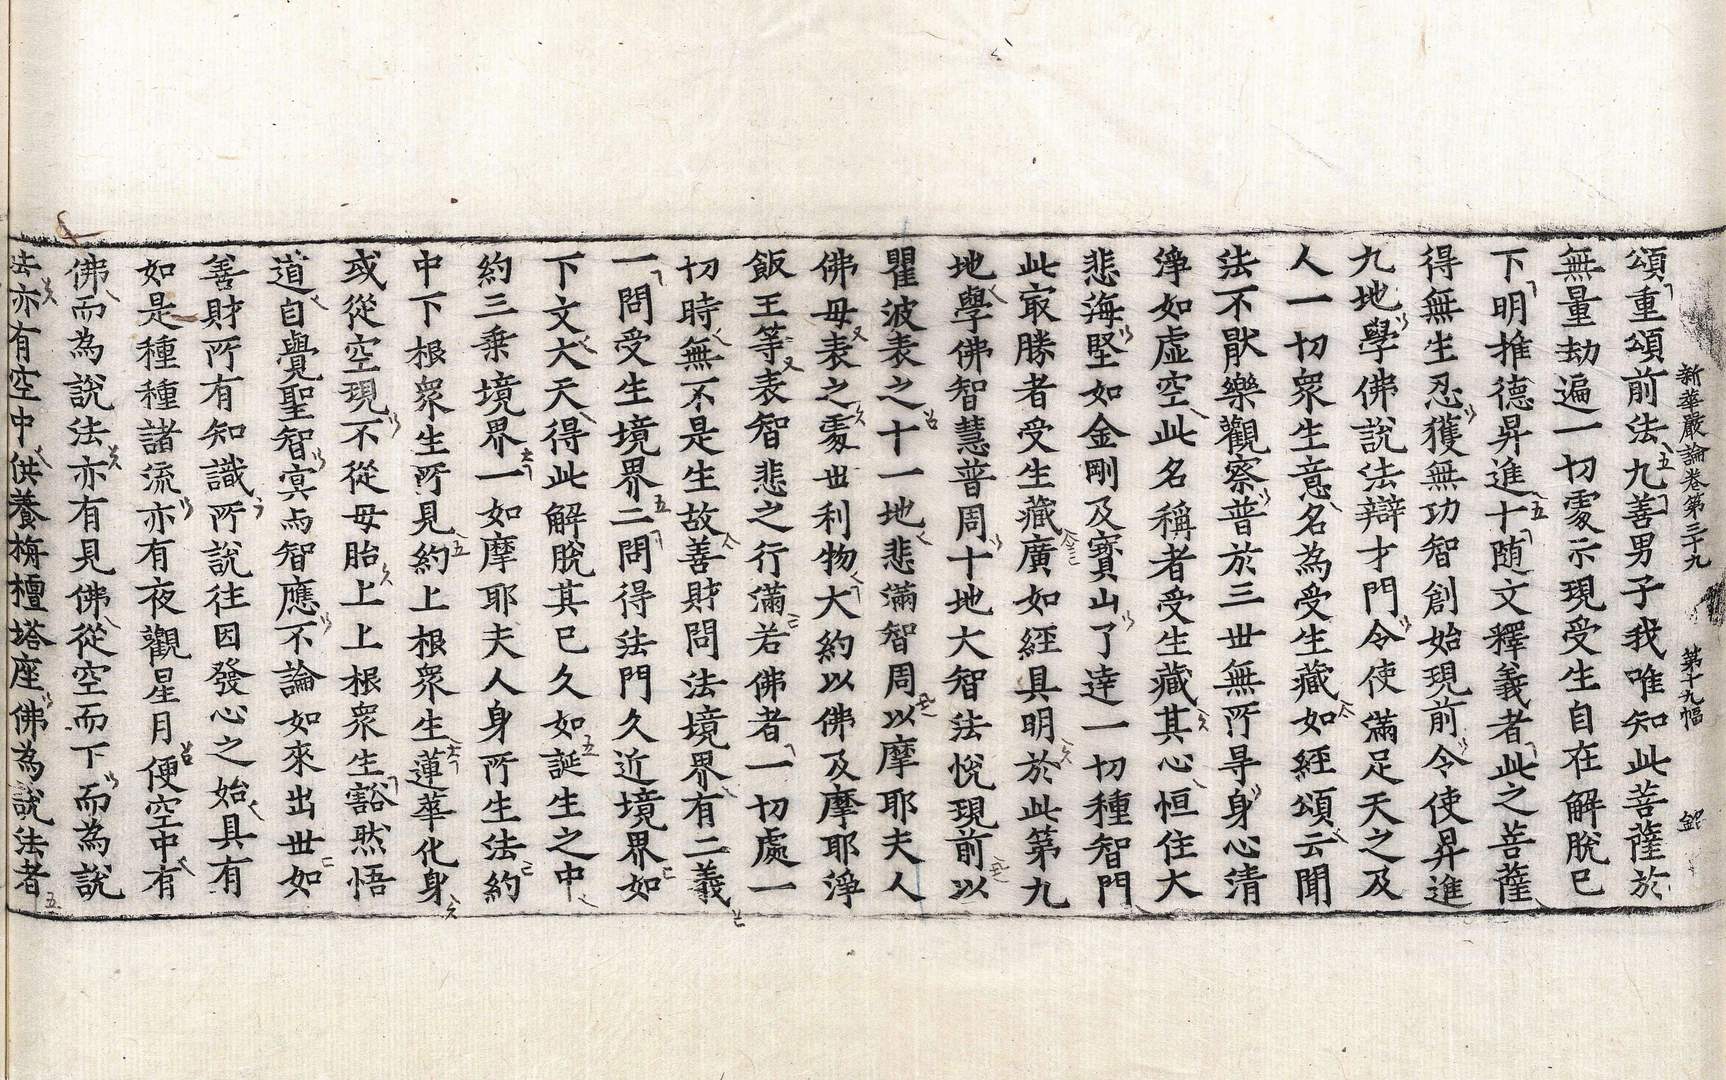 新華嚴論卷第三十九 第十九幅
頌重頌前法九善男子我唯知此菩薩於
無量劫遍一切處示現受生自在解脫已
下明推德昇進十隨文釋義者此之菩薩
得無生忍獲無功智創始現前令使昇進
九地學佛說法辯才門令使滿足天之及
人一切眾生意名為受生藏如經頌云聞
法不猒樂觀察普於三世無所㝵身心清
淨如虛空此名稱者受生藏其心恒住大
悲海堅如金剛及寶山了達一切種智門
此㝡勝者受生藏廣如經具明於此第九
地學佛智慧普周十地大智法悅現前以
瞿波表之十一地悲滿智周以摩耶夫人
佛母表之處世利物大約以佛及摩耶淨
飯王等表智悲之行滿若佛者一切處一
切時無不是生故善財問法境界有二義
一問受生境界二問得法門久近境界如
下文大天得此解脫其已久如誕生之中
約三乘境界一如摩耶夫人身所生法約
中下根眾生所見約上根眾生蓮華化身
或從空現不從母胎上上根眾生豁然悟
道自覺聖智冥而智應不論如來出世如
善財所有知識所說往因發心之始具有
如是種種諸流亦有夜觀星月便空中有
佛而為說法亦有見佛從空而下而為說
法亦有空中供養栴檀塔座佛為說法者